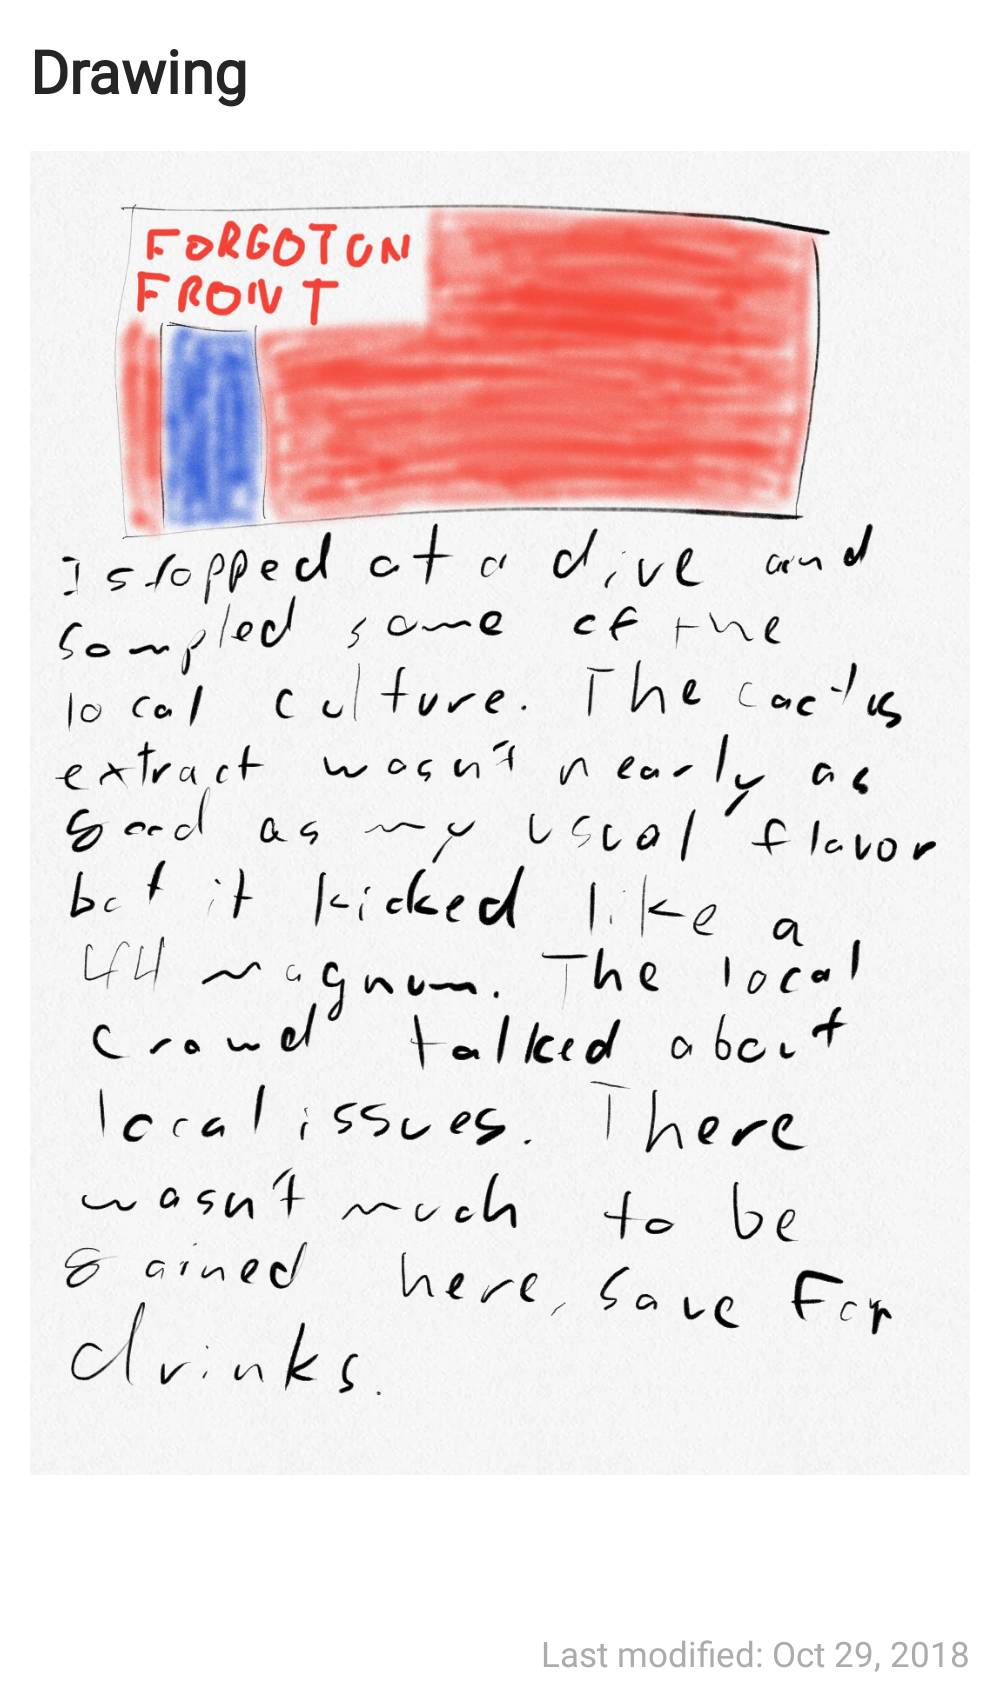 Drawing
FORGOTON
FRONT
I stopped at a dive and
sampled some of the
local culture. The cactus
extract wasn't nearly as
good as my usual flavor
but it kicked like a
44 magnum. The local
crowd talked about
local issues. There
wasn't much to be
gained here, save for
drinks.
Last modified: Oct 29, 2018